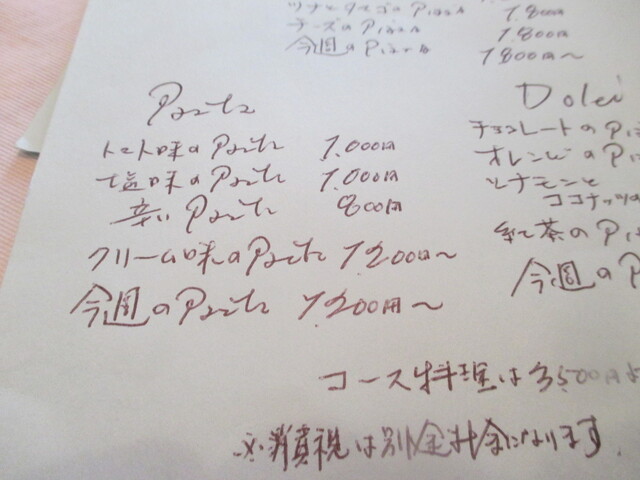 ツナとタマゴのPizza 1.800円
チーズのPizza 1.800円
今週のPizza 1800円〜
Pasta
トマト味のPasta 1.000円
塩味のPasta 1.000円
辛いPasta 800円
クリーム味のPasta 1200円〜
今週のPasta 1.200円〜
Dolci
チョコレートのPi
オレンジのPi
シナモンと
ココナッツ
紅茶のPi
今週のP
コース料理は3500円よ
※消費税は別金料金になります